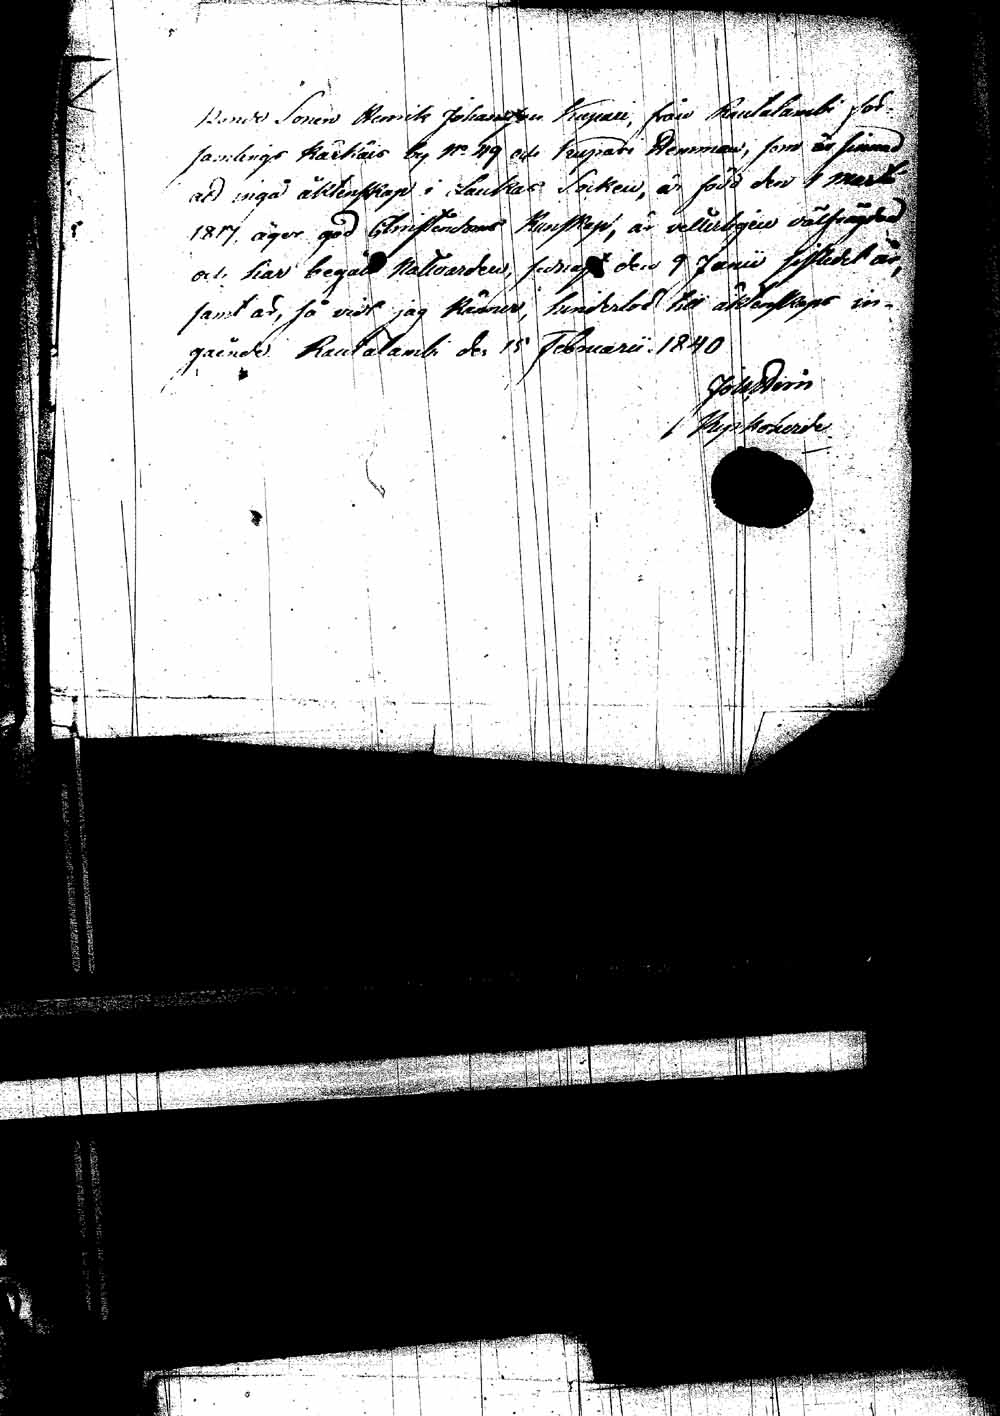 Bonde Sonen Henrik Johansson Kupari, från Rautalambi för-
samlings Kärkäis by No 49 och Kupari Hemman, som är sinnad
att ingå äktenskap i Laukas Socken, är född den 1 Martii
1817, äger god Christendoms Kunskap, är veterligen välfrägdad
och har begått Nattvarden, sednast den 9 Junii sistledet år,
samt är, så vidt jag känner, hinderlös till äktenskaps in-
gående. Rautalambi den 15 Februarii 1840
Kyrkoherde